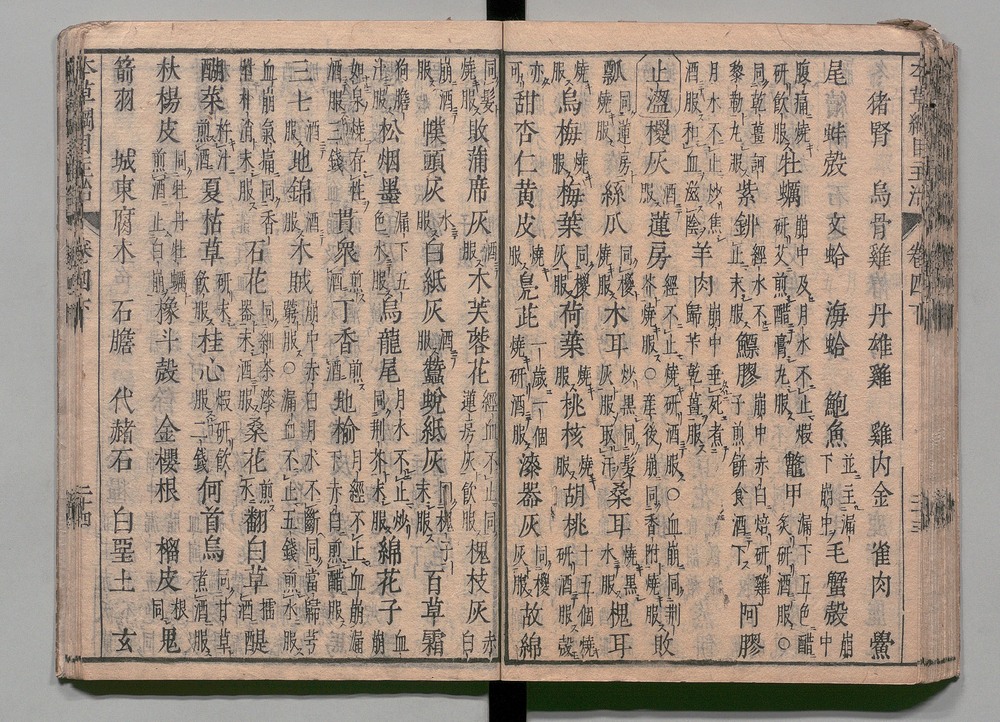 猪腎 烏骨雞 丹雄雞 雞内金 雀肉 鱟
尾 蚌殻 文蛤 海蛤 鮑魚 並主漏下崩中 毛蟹殻 崩中
腹痛燒研飲服 牡蠣 崩中及月水不止煅研艾煎醋膏丸服 鼈甲 漏下五色醋炙研酒服○
同乾薑訶黎勒丸服 紫鉚 經水不止末服 鰾膠 崩中赤白焙研雞子煎餅食酒下 阿膠
月水不止炒焦酒服和血滋陰 羊肉 崩中垂死煮歸芐乾薑服
止澀 椶灰 酒服 蓮房 經不止燒研酒服○血崩同荆芥燒服○産後崩同香附燒服 敗
瓢 同蓮房燒服 絲瓜 同椶燒服 木耳 炒黒同髪灰服取汗 桑耳 燒黒服 槐耳
燒服 烏梅 燒服 梅葉 同椶灰服 荷葉 燒服 桃核 燒服 胡桃 十五個燒研酒服 殻
亦可 甜杏仁黄皮 燒服 鳬茈 一歳一個燒研酒服 漆器灰 同椶灰服 故綿
同髪燒服 敗蒲席灰 酒服 木芙蓉花 經血不止同蓮房灰飲服 槐枝灰 赤白
崩酒服 幞頭灰 水服 白紙灰 酒服 蠶蛻紙灰 同槐子末服 百草霜
狗膽汁服 松烟墨 漏下五色水服 烏龍尾 月水不止炒同荆芥末服 綿花子 血崩
如泉燒存性酒服三錢 貫衆 煎酒服 丁香 煎酒服 地榆 月經不止血崩漏下赤白煎醋服
三七 酒服 地錦 酒服 木賊 崩中赤白月水不斷同當歸芎藭服○漏血不止五錢煎水服
血崩氣痛同香附朴消末服 石花 同細茶漆器末酒服 桑花 煎水服 翻白草 擂酒服 醍
醐菜 杵汁煎酒 夏枯草 研末飲服 桂心 煅研飲服二錢 何首烏 同甘草煮酒服
杕楊皮 同牡丹牡蠣煎酒止白崩 橡斗殻 金櫻根 榴皮 根同 鬼
箭羽 城東腐木 石膽 代赭石 白堊土 玄
本草綱目主治 卷四下